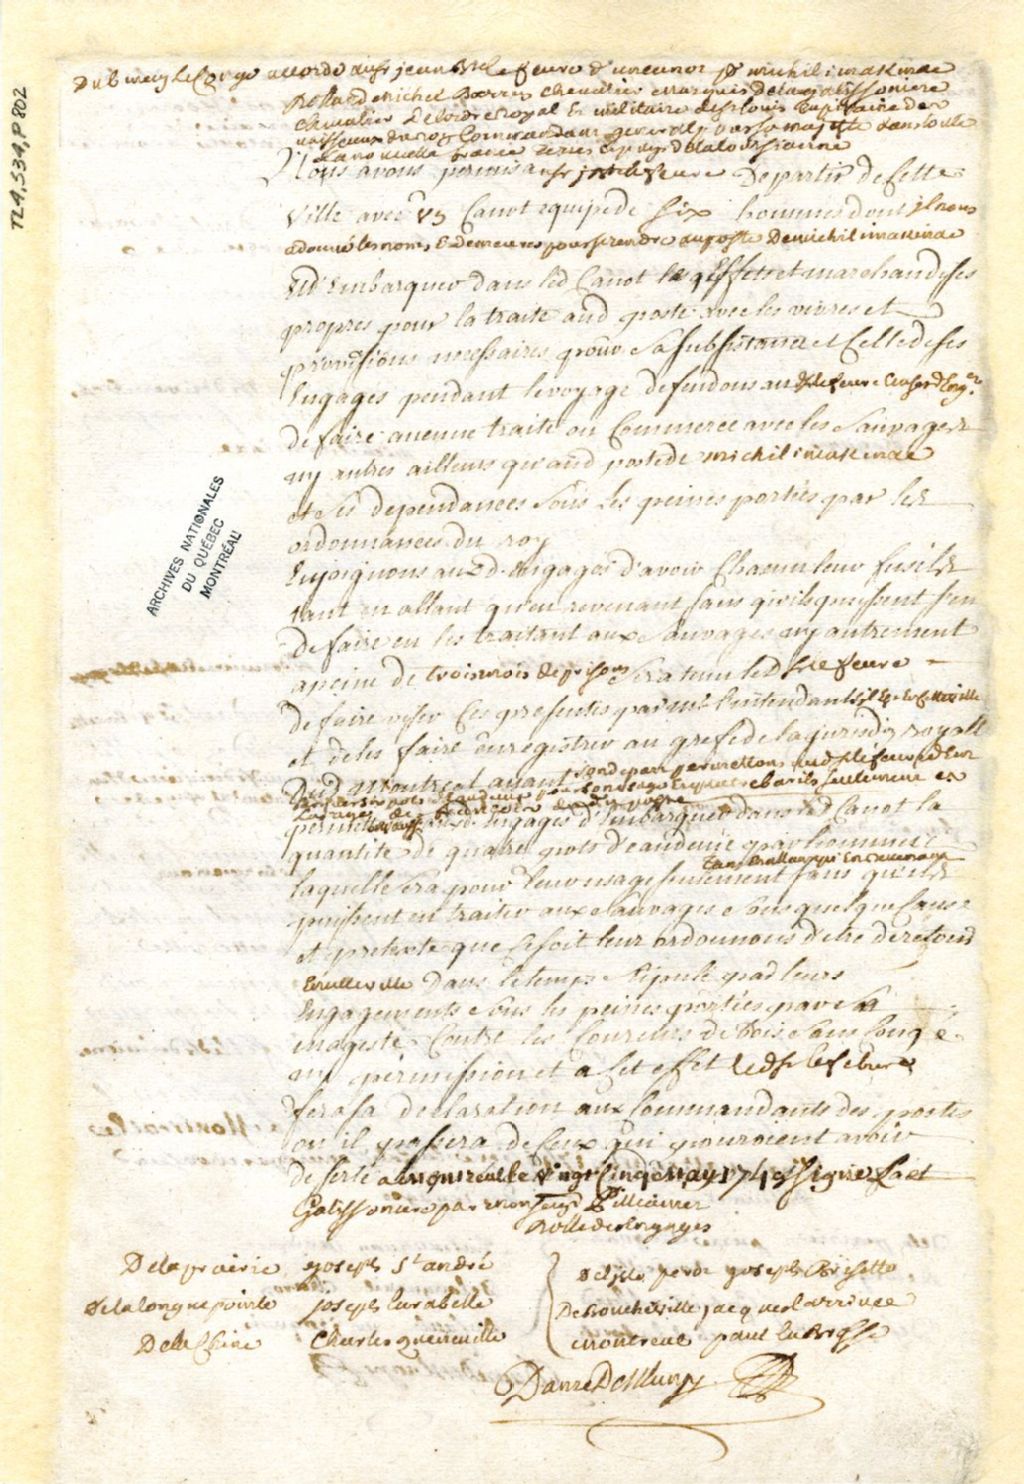 TL4,S34,P802
ARCHIVES NATIONALES
DU QUÉBEC
MONTRÉAL
accordé au sr jean Bte Lefeuvre michilimakinac
Rolland Michel Barrin Chevalier Marquis de la galissoniere
Chevalier De Lordre royal Et militaire de st louis Capitaine des
vaisseaux du roy Commandant general pour sa majesté dans toute
La nouvelle france terres Et pays de la Louissianne
Nous avons permis au sr jn bte lefeuvre De partir de Cette
Ville avec un Canot equipé de six hommes dont il nous
a donné les noms & demeures pour se rendre au poste De michilimakinac
Et d'Embarquer dans led Canot les Effets et marchandises
propres pour la traite aud poste avec les vivres et
provisions necessaires pour sa subsistance et Celle de ses
Engagés pendant le voyage defendons aud sr lefeuvre
de faire aucune traite ou Commerce avec les Sauvages
ny autres ailleurs qu'aud poste de michilimakinac
et ses dependances sous les peines portées par les
ordonnances du roy
Enjoignons auxd. engagés d'avoir Chacun leur fusil
tant en allant qu'en revenant sans qu'ils puissent s'en
defaire en les traitant aux Sauvages ny autrement
a peine de trois mois de prison sera tenu led sr lefeuvre
de faire viser Ces presentes par mr l'intendant s'il Est En Cette ville
et de les faire enregistrer au grefe de la jurisdon royalle
dud Montreal avant son depart permettons aud sr lefeuvre
barils seulement
permettons auxd. Engagés d'Embarquer dans led Canot la
quantité de quatre pots d'eaudevie par homme
Tant En allant qu'En revenant
laquelle sera pour leur usage seulement sans qu'ils
puissent en traiter aux Sauvages sous quelque Cause
et pretexte que Ce soit leur ordonnons d'etre de retour
En Cette ville Dans le temps stipulé par leurs
Engagements sous les peines portées par sa
majesté Contre les Coureurs de bois sans Congé
ny permission et a Cet effet led sr lefebvre
fera sa declaration aux Commandants des postes
ou il passera de Ceux qui pouroient avoir
deserté a montreal le vingt Cinq may 1749 signé La
Galissoniere par monseigr
Rolle des Engagés
De la prairie joseph st andré
De la longue pointe joseph Lurabelle
De la Chine Charles queneville
De l'isle perdr joseph Brisette
De Boucherville jacques larrivée
montreal paul la Brosse
Danré De Blanzy